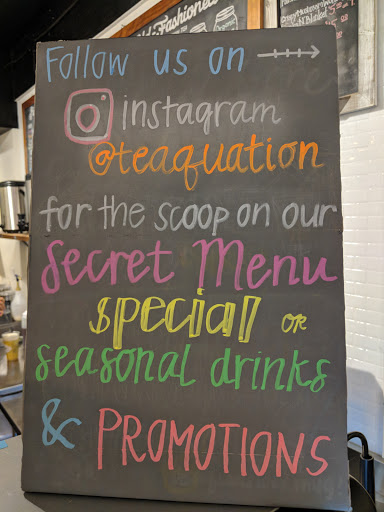 Follow us on
instagram
@teaquation
for the scoop on our
Secret Menu
special or
seasonal drinks
& PROMOTIONS